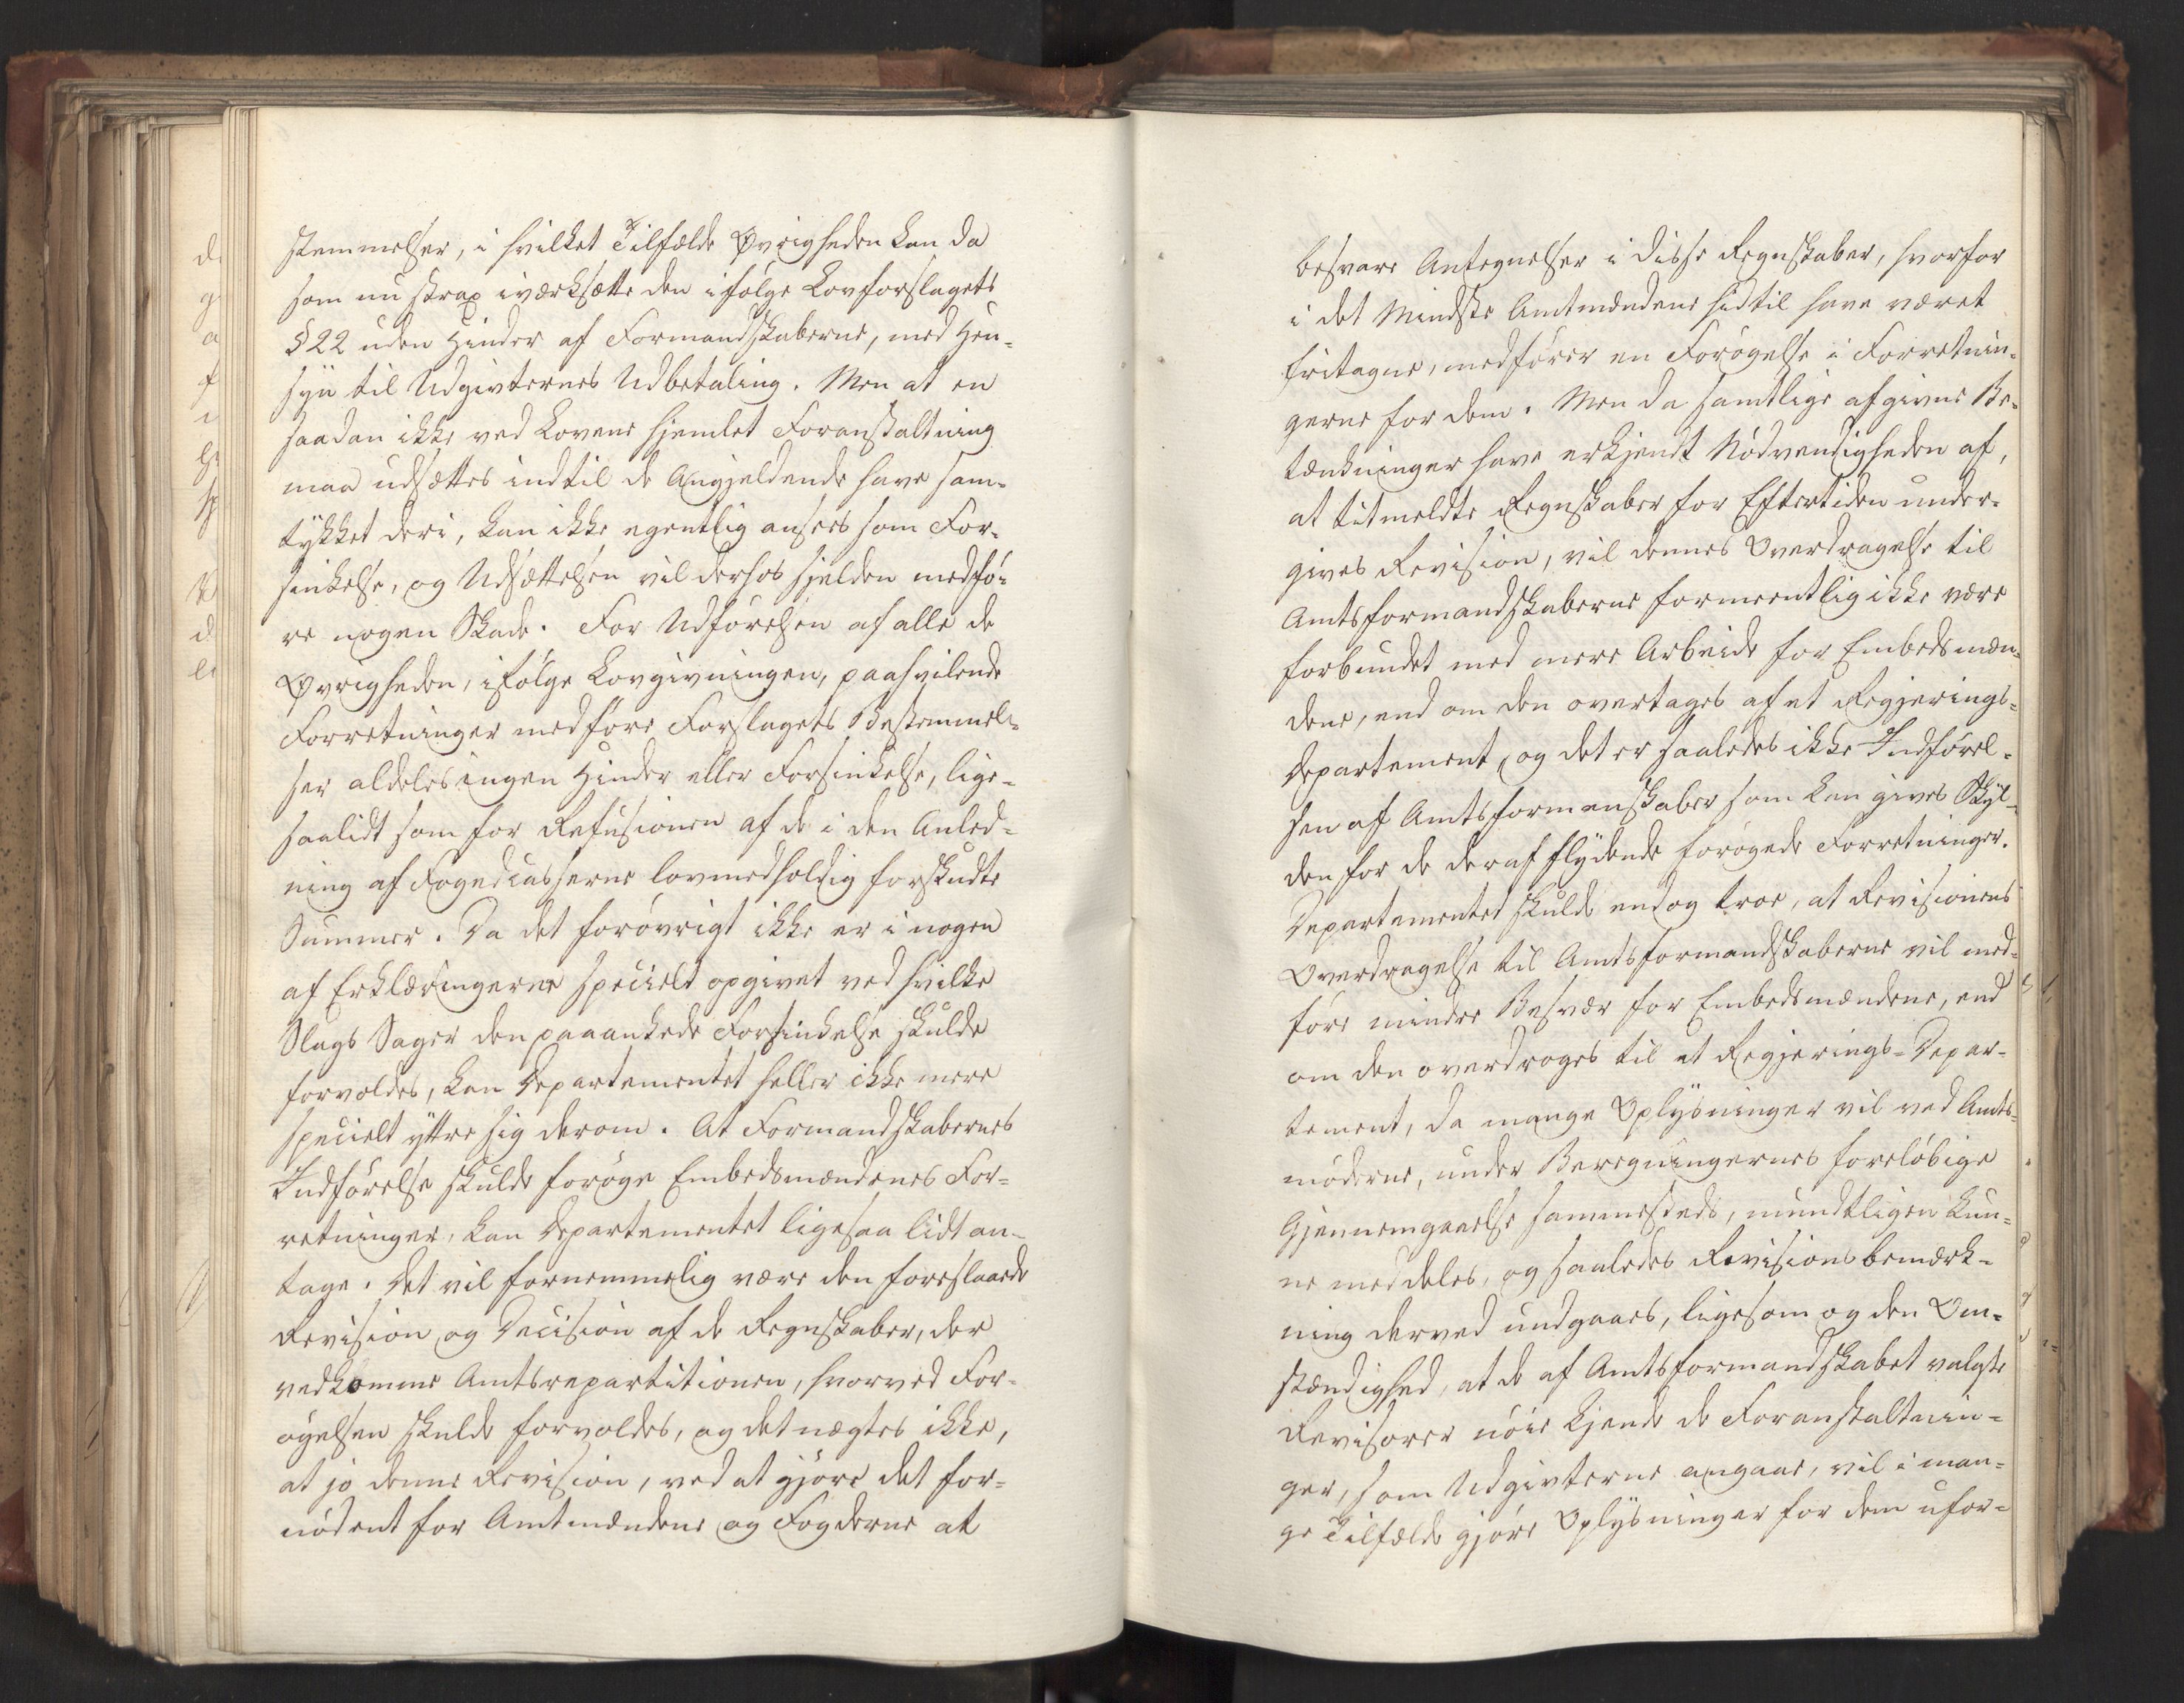 stemmelser, i hvilket Tilfælde Øvrigheden kan da
som nu strax iværksætte den ifølge Lovforslagets
§ 22 uden Hinder af Formandskaberne, med Hen-
syn til Udgivternes Udbetaling. Men at en
saadan ikke ved Lovene hjemlet Foranstaltning
maa udsættes indtil de Angjeldende have sam-
tykket deri, kan ikke egentlig ansees som For-
sinkelse, og Udsættelsen vil derhos sjelden medfø-
re nogen Skade. For Udførelsen af alle de
Øvrigheden, ifølge Lovgivningen, paahvilende
Forretninger medføre Forslagets Bestemmel-
ser aldeles ingen Hinder eller Forsinkelse, lige-
saalidt som for Refusionen af de i den Anled-
ning af Fogedcasserne lovmedholdig forskudte
Summer. Da det forøvrigt ikke er i nogen
af Erklæringerne specielt opgivet ved hvilke
Slags Sager den paaankede Forsinkelse skulde
forvoldes, kan Departementet heller ikke mere
specielt yttre sig derom. At Formandskabernes
Indførelse skulde forøge Embedsmændenes For-
retninger, kan Departementet ligesaa lidt an-
tage. Det vil fornemmelig være den foreslaaede
Revision og Decision af de Regnskaber, der
vedkomme Amtsrepartitionen, hvorved For-
øgelsen skulde forvoldes, og det nægtes ikke,
at jo denne Revision, ved at gjøre det for-
nødent for Amtmændene og Fogderne at
besvare Antegnelser i disse Regnskaber, hvorfor
i det Mindste Amtmændene hidtil have været
fritagne, medfører en Forøgelse i Forretnin-
gerne for dem. Men da samtlige afgivne Be-
tænkninger have erkjendt Nødvendigheden af,
at titmeldte Regnskaber for Eftertiden under-
gives Revision, vil dennes Overdragelse til
Amtsformandskaberne formeentlig ikke være
forbundet med mere Arbeide for Embedsmæn-
dene, end om den overtages af et Regjerings-
Departement, og det er saaledes ikke Indførel-
sen af Amtsformanskaber som kan gives Skyl-
den for de deraf flydende forøgede Forretninger.
Departementet skulde endog troe, at Revisionens
Overdragelse til Amtsformandskaberne vil med-
føre mindre Besvær for Embedsmændene, end
om den overdroges til et Regjerings-Depar-
tement, da mange Oplysninger vil ved Amts-
møderne, under Beregningernes foreløbige
Gjennemgaaelse sammesteds, mundtligen kun-
ne meddeles, og saaledes Revisionsbemærk-
ning derved undgaaes, ligesom og den Om-
stændighed, at de af Amtsformandskabet valgte
Revisorer nøie kjende de Foranstaltnin-
ger, som Udgivterne angaae, vil i man-
ge Tilfælde gjøre Oplysninger for dem ufor-